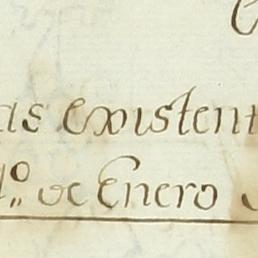 as existent
1.º de Enero